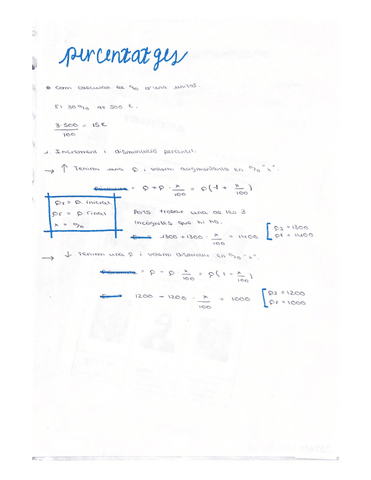 percentatges
• Com calcular el % d'una unitat.
El 30% de 500 €.
3·500 / 100 = 15€
1. Increment i disminució percentual.
→ ↑ Tenim una P i volem augmentar-la en %"x".
= P + P · x/100 = P(1 + x/100)
PI = P. inicial
PF = P. final
x = %
incògnites que hi ha.
1300 + 1300 · x/100 = 1400
= 1300
= 1400
→ ↓ Tenim una P i volem disminuir en %"x".
= P - P · x/100 = P(1 - x/100)
1200 - 1200 · x/100 = 1000
= 1200
= 1000